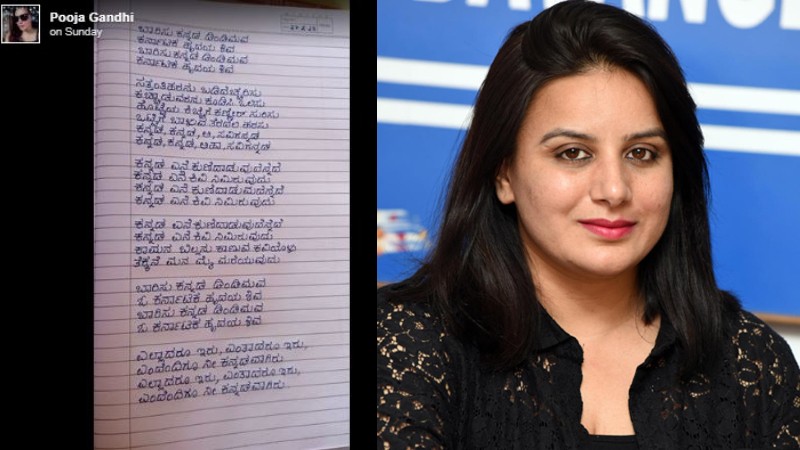 Pooja Gandhi
on Sunday
ಬಾರಿಸು ಕನ್ನಡ ಡಿಂಡಿಮವ
ಕರ್ನಾಟಕ ಹೃದಯ ಶಿವ
ಬಾರಿಸು ಕನ್ನಡ ಡಿಂಡಿಮವ
ಕರ್ನಾಟಕ ಹೃದಯ ಶಿವ
ಸತ್ತಂತಿಹರನು ಬಡಿದೆಚ್ಚರಿಸು
ಕಚ್ಚಾಡುವರನು ಕೂಡಿಸಿ ಒಲಿಸು
ಹೊಟ್ಟೆಯ ಕಿಚ್ಚಿಗೆ ಕಣ್ಣೀರ್ ಸುರಿಸು
ಒಟ್ಟಿಗೆ ಬಾಳುವ ತೆರದಲಿ ಹರಸು
ಕನ್ನಡ, ಕನ್ನಡ, ಆ, ಸವಿಕನ್ನಡ
ಕನ್ನಡ, ಕನ್ನಡ, ಅಹಾ, ಸವಿಕನ್ನಡ
ಕನ್ನಡ ಎನೆ ಕುಣಿದಾಡುವುದೆನ್ನೆದೆ
ಕನ್ನಡ ಎನೆ ಕಿವಿ ನಿಮಿರುವುದು
ಕನ್ನಡ ಎನೆ ಕುಣಿದಾಡುವುದೆನ್ನೆದೆ
ಕನ್ನಡ ಎನೆ ಕಿವಿ ನಿಮಿರುವುದು
ಕನ್ನಡ ಎನೆ ಕುಣಿದಾಡುವುದೆನ್ನೆದೆ
ಕನ್ನಡ ಎನೆ ಕಿವಿ ನಿಮಿರುವುದು
ಕಾಮನ ಬಿಲ್ಲನು ಕಾಣುವ ಕವಿಯೊಳು
ತೆಕ್ಕನೆ ಮನ ಮೈ ಮರೆಯುವುದು
ಬಾರಿಸು ಕನ್ನಡ ಡಿಂಡಿಮವ
ಓ ಕರ್ನಾಟಕ ಹೃದಯ ಶಿವ
ಬಾರಿಸು ಕನ್ನಡ ಡಿಂಡಿಮವ
ಓ ಕರ್ನಾಟಕ ಹೃದಯ ಶಿವ
ಎಲ್ಲಾದರೂ ಇರು, ಎಂತಾದರೂ ಇರು,
ಎಂದೆಂದಿಗೂ ನೀ ಕನ್ನಡವಾಗಿರು
ಎಲ್ಲಾದರೂ ಇರು, ಎಂತಾದರೂ ಇರು,
ಎಂದೆಂದಿಗೂ ನೀ ಕನ್ನಡವಾಗಿರು